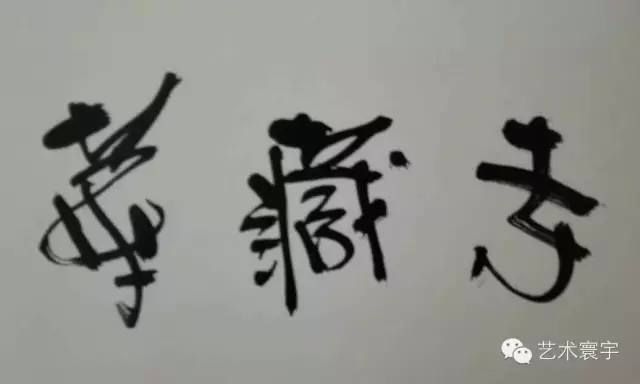 華藏寺
艺术寰宇